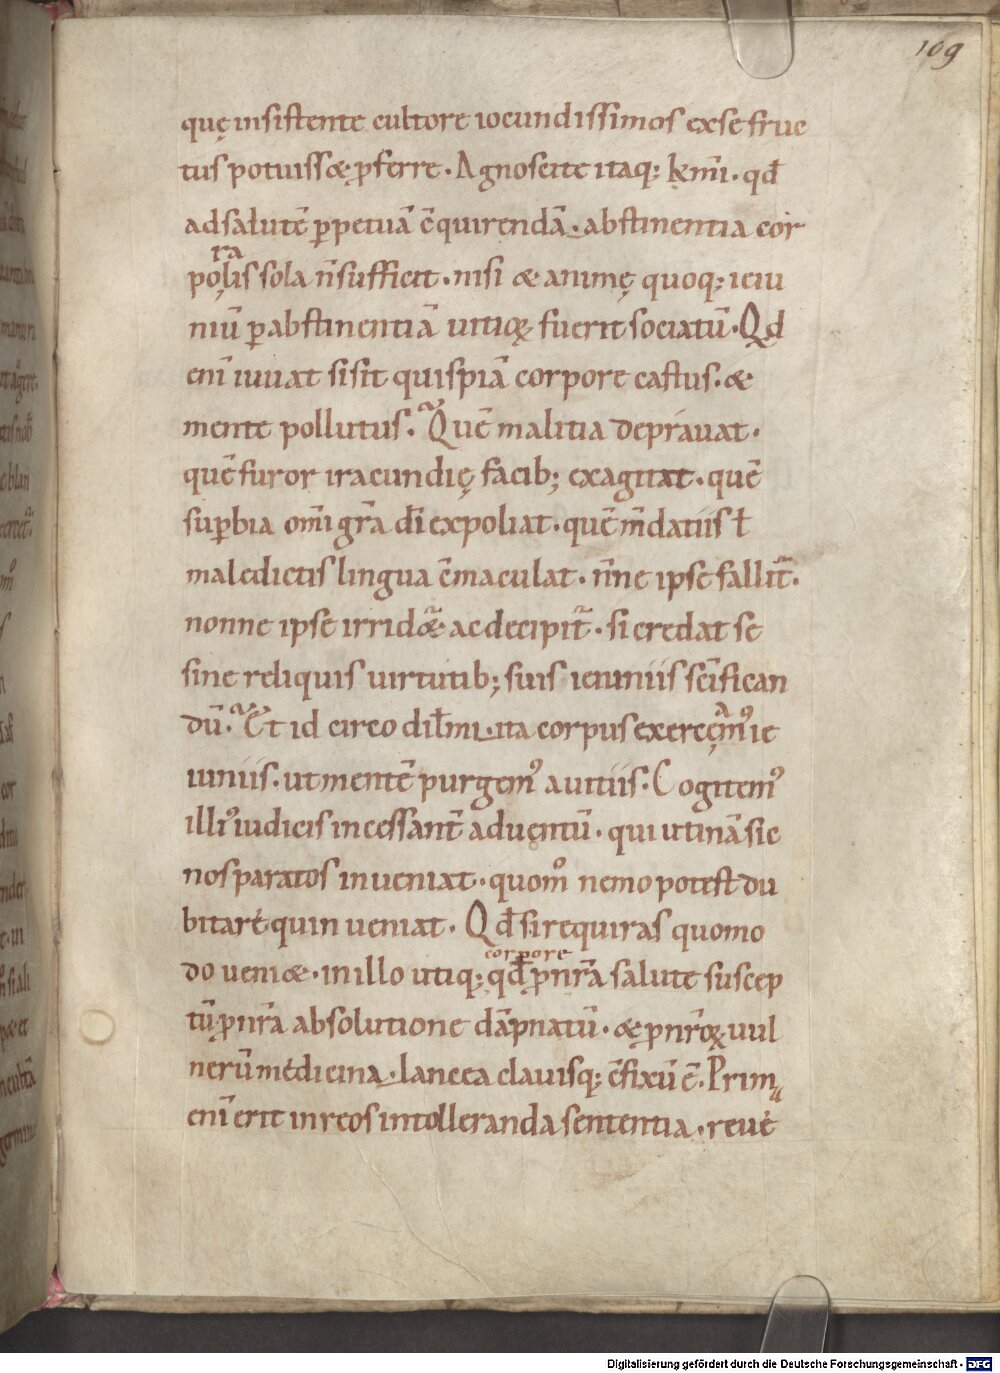 109
quę insistente cultore iocundissimos ex se fruc
tus potuissæ ꝓferre. Agnoscite itaq; kr̄mi. qd̄
ad salutē ꝑpetuā c̄quirendā. abstinentia cor
ra
poↄlis sola n̄ sufficit. nisi & animę quoq; ieiu
niū ꝑ abstinentiā uitioꝝ fuerit sociatū. Qd
eni͞ iuuat si sit quispiā corpore castus. &
mente pollutus. Quē malitia deprauat.
quē furor iracundię facib; exagitat. quē
suꝑbia om̄i gr̄a dī expoliat. quē m̄datiis ł
maledictis lingua c̄maculat. n̄ne ipse fallit᷑.
nonne ipse irridæt᷑ ac decipit᷑. si credat se
sine reliquis uirtutib; suis ieiuniis sc̄ifican
dū. Et id circo dił̄mi. ita corpus exerceam᷒ ie
iuniis. ut mentē purgem᷒ a uitiis. Cogitem᷒
illi᷒ iudicis incessant̄ aduentū. qui utinā sic
nos paratos inueniat. quom̊ nemo potest du
bitare. quin ueniat. Qd̄ si requiras quomo
corpore
do ueniæ. in illo utiq; qd̄ ꝓ nr̄a salute suscep
tū. ꝓ nr̄a absolutione dāpnatū. & ꝓ nr̄oꝝ uul
nerū medicina. lancea clauisq; c̄fixū ē. Prim
eni͞ erit in reos intolleranda sententia. reue
Digitalisierung gefördert durch die Deutsche Forschungsgemeinschaft - DFG